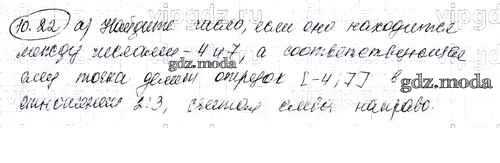 10.22 а) Найдите число, если оно находится
между числами -4 и 7, а соответствующая
ему точка делит отрезок [-4; 7] в
отношении 2:3, считая слева направо.
gdz.moda
gdz.moda
gdz.moda